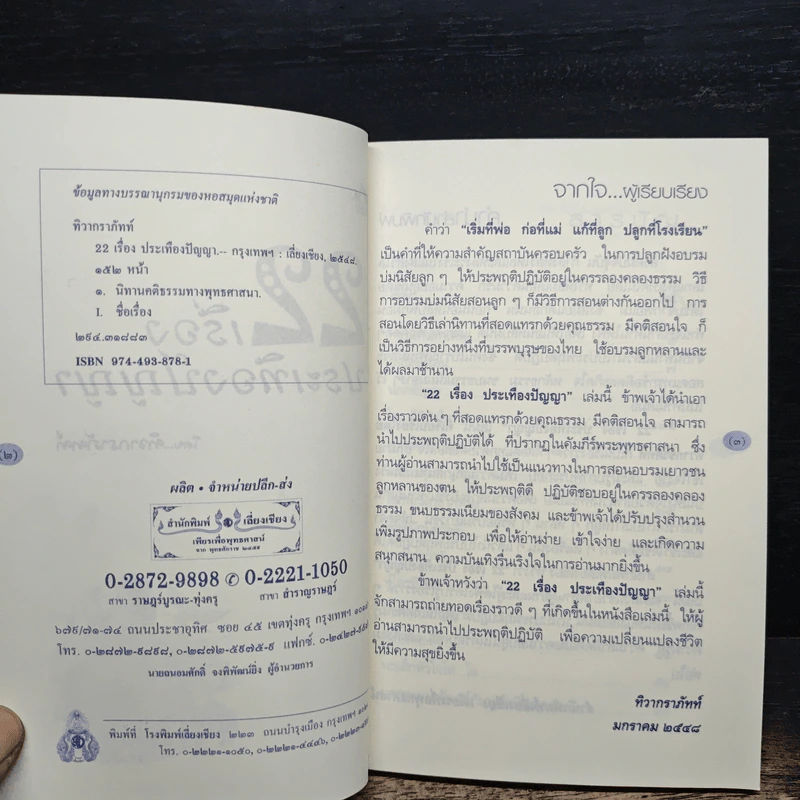 ข้อมูลทางบรรณานุกรมของหอสมุดแห่งชาติ
ทิวากราภัทท์
22 เรื่อง ประเทืองปัญญา.-- กรุงเทพฯ : เลี่ยงเชียง, ๒๕๔๘.
๑๕๒ หน้า
๑. นิทานคติธรรมทางพุทธศาสนา.
I. ชื่อเรื่อง
๒๙๔.๓๑๘๘๓
ISBN 974-493-878-1
(๒)
ผลิต • จำหน่ายปลีก-ส่ง
สำนักพิมพ์ เลี่ยงเชียง
เพียรเพื่อพุทธศาสน์
0-2872-9898 ✆ 0-2221-1050
สาขา ราษฎร์บูรณะ-ทุ่งครุ สาขา สำราญราษฎร์
๖๗๙/๗๑-๗๔ ถนนประชาอุทิศ ซอย ๔๕ เขตทุ่งครุ กรุงเทพฯ
โทร. ๐-๒๘๗๒-๙๘๙๘, ๐-๒๘๗๒-๕๙๗๕-๙ แฟกซ์.
นายถนอมศักดิ์ จงพิพัฒน์ยิ่ง ผู้อำนวยการ
พิมพ์ที่ โรงพิมพ์เลี่ยงเชียง ๒๒๓ ถนนบำรุงเมือง กรุงเทพฯ
โทร. ๐-๒๒๒๑-๑๐๕๐, ๐-๒๒๒๑-๔๔๔๖,
จากใจ...ผู้เรียบเรียง
คำว่า "เริ่มที่พ่อ ก่อที่แม่ แก้ที่ลูก ปลูกที่โรงเรียน"
เป็นคำที่ให้ความสำคัญสถาบันครอบครัว ในการปลูกฝังอบรม
บ่มนิสัยลูก ๆ ให้ประพฤติปฏิบัติอยู่ในครรลองคลองธรรม วิธี
การอบรมบ่มนิสัยสอนลูก ๆ ก็มีวิธีการสอนต่างกันออกไป การ
สอนโดยวิธีเล่านิทานที่สอดแทรกด้วยคุณธรรม มีคติสอนใจ ก็
เป็นวิธีการอย่างหนึ่งที่บรรพบุรุษของไทย ใช้อบรมลูกหลานและ
ได้ผลมาช้านาน
"22 เรื่อง ประเทืองปัญญา" เล่มนี้ ข้าพเจ้าได้นำเอา
เรื่องราวเด่น ๆ ที่สอดแทรกด้วยคุณธรรม มีคติสอนใจ สามารถ
นำไปประพฤติปฏิบัติได้ ที่ปรากฏในคัมภีร์พระพุทธศาสนา ซึ่ง
ท่านผู้อ่านสามารถนำไปใช้เป็นแนวทางในการสอนอบรมเยาวชน
ลูกหลานของตน ให้ประพฤติดี ปฏิบัติชอบอยู่ในครรลองคลอง
ธรรม ขนบธรรมเนียมของสังคม และข้าพเจ้าได้ปรับปรุงสำนวน
เพิ่มรูปภาพประกอบ เพื่อให้อ่านง่าย เข้าใจง่าย และเกิดความ
สนุกสนาน ความบันเทิงรื่นเริงใจในการอ่านมากยิ่งขึ้น
ข้าพเจ้าหวังว่า "22 เรื่อง ประเทืองปัญญา" เล่มนี้
จักสามารถถ่ายทอดเรื่องราวดี ๆ ที่เกิดขึ้นในหนังสือเล่มนี้ ให้ผู้
อ่านสามารถนำไปประพฤติปฏิบัติ เพื่อความเปลี่ยนแปลงชีวิต
ให้มีความสุขยิ่งขึ้น
ทิวากราภัทท์
มกราคม ๒๕๔๘
(๓)